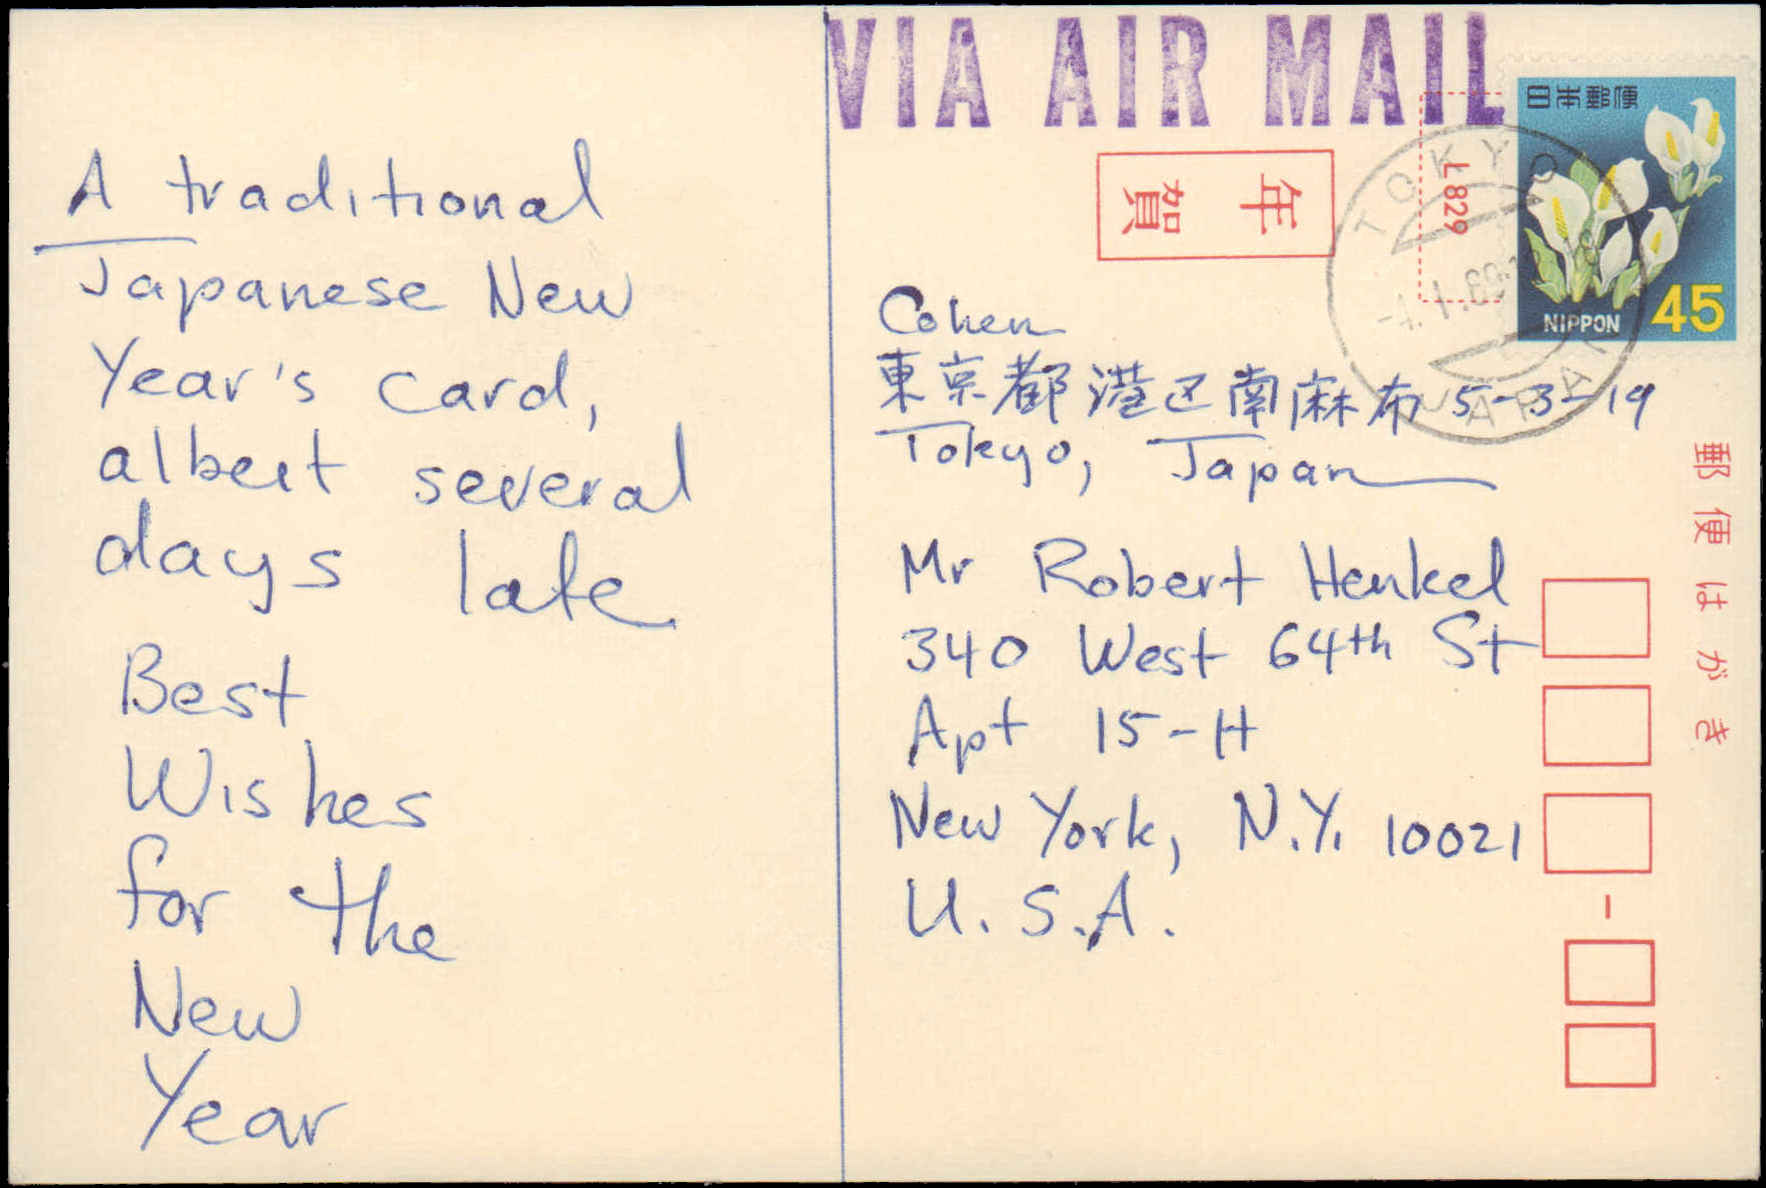 A traditional
Japanese New
Year's card,
albeit several
days late
Best
Wishes
for the
New
Year
VIA AIR MAIL
年賀
L829
日本郵便
NIPPON 45
TOKYO
JAPAN
Cohen
東京都港区南麻布 5-3-19
Tokyo, Japan
Mr Robert Henkel
340 West 64th St
Apt 15-H
New York, N.Y. 10021
U.S.A.
郵便はがき